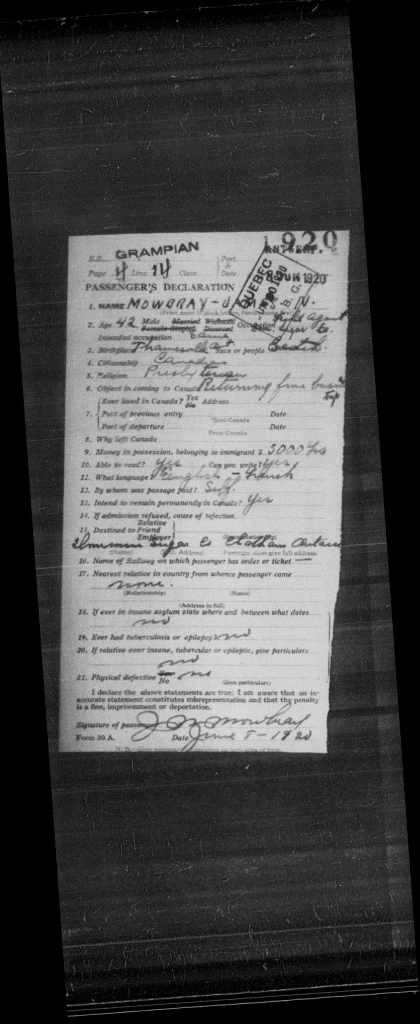 1920
S.S. GRAMPIAN Port & Date ANTWERP.
Page 4 Line 14 Class JUN 1920
QUEBEC
PASSENGER'S DECLARATION
1. NAME MOWBRAY - N.
2. Age 42 Male Married Widowed Female Single Divorced agent
Intended occupation same
3. Birthplace Thamesville Ont Race or people Scotch
4. Citizenship Canadian
5. Religion Presbyterian
6. Object in coming to Canada Returning from business trip
7. Ever lived in Canada? Yes No Address
Port of previous entry Date
To Canada
Port of departure Date
From Canada
8. Why left Canada
9. Money in possession, belonging to immigrant $ 5000 frs
10. Able to read? Yes Can you write? Yes
11. What language? English - French
12. By whom was passage paid? Self
13. Intend to remain permanently in Canada? Yes
14. If admission refused, cause of rejection
15. Destined to Relative Friend Employer
Dominion Sugar Co Chatham Ontario
(Name) Address) Passenger must give full address
16. Name of Railway on which passenger has order or ticket —
17. Nearest relative in country from whence passenger came
none.
(Relationship) (Name)
(Address in full)
18. If ever in insane asylum state where and between what dates
no
19. Ever had tuberculosis or epilepsy no
20. If relative ever insane, tubercular or epileptic, give particulars
no
21. Physical defective No no
(Give particulars)
I declare the above statements are true; I am aware that an in-
accurate statement constitutes misrepresentation and that the penalty
is a fine, imprisonment or deportation.
Signature of passenger J N Mowbray
Form 30 A. Date June 8 - 1920